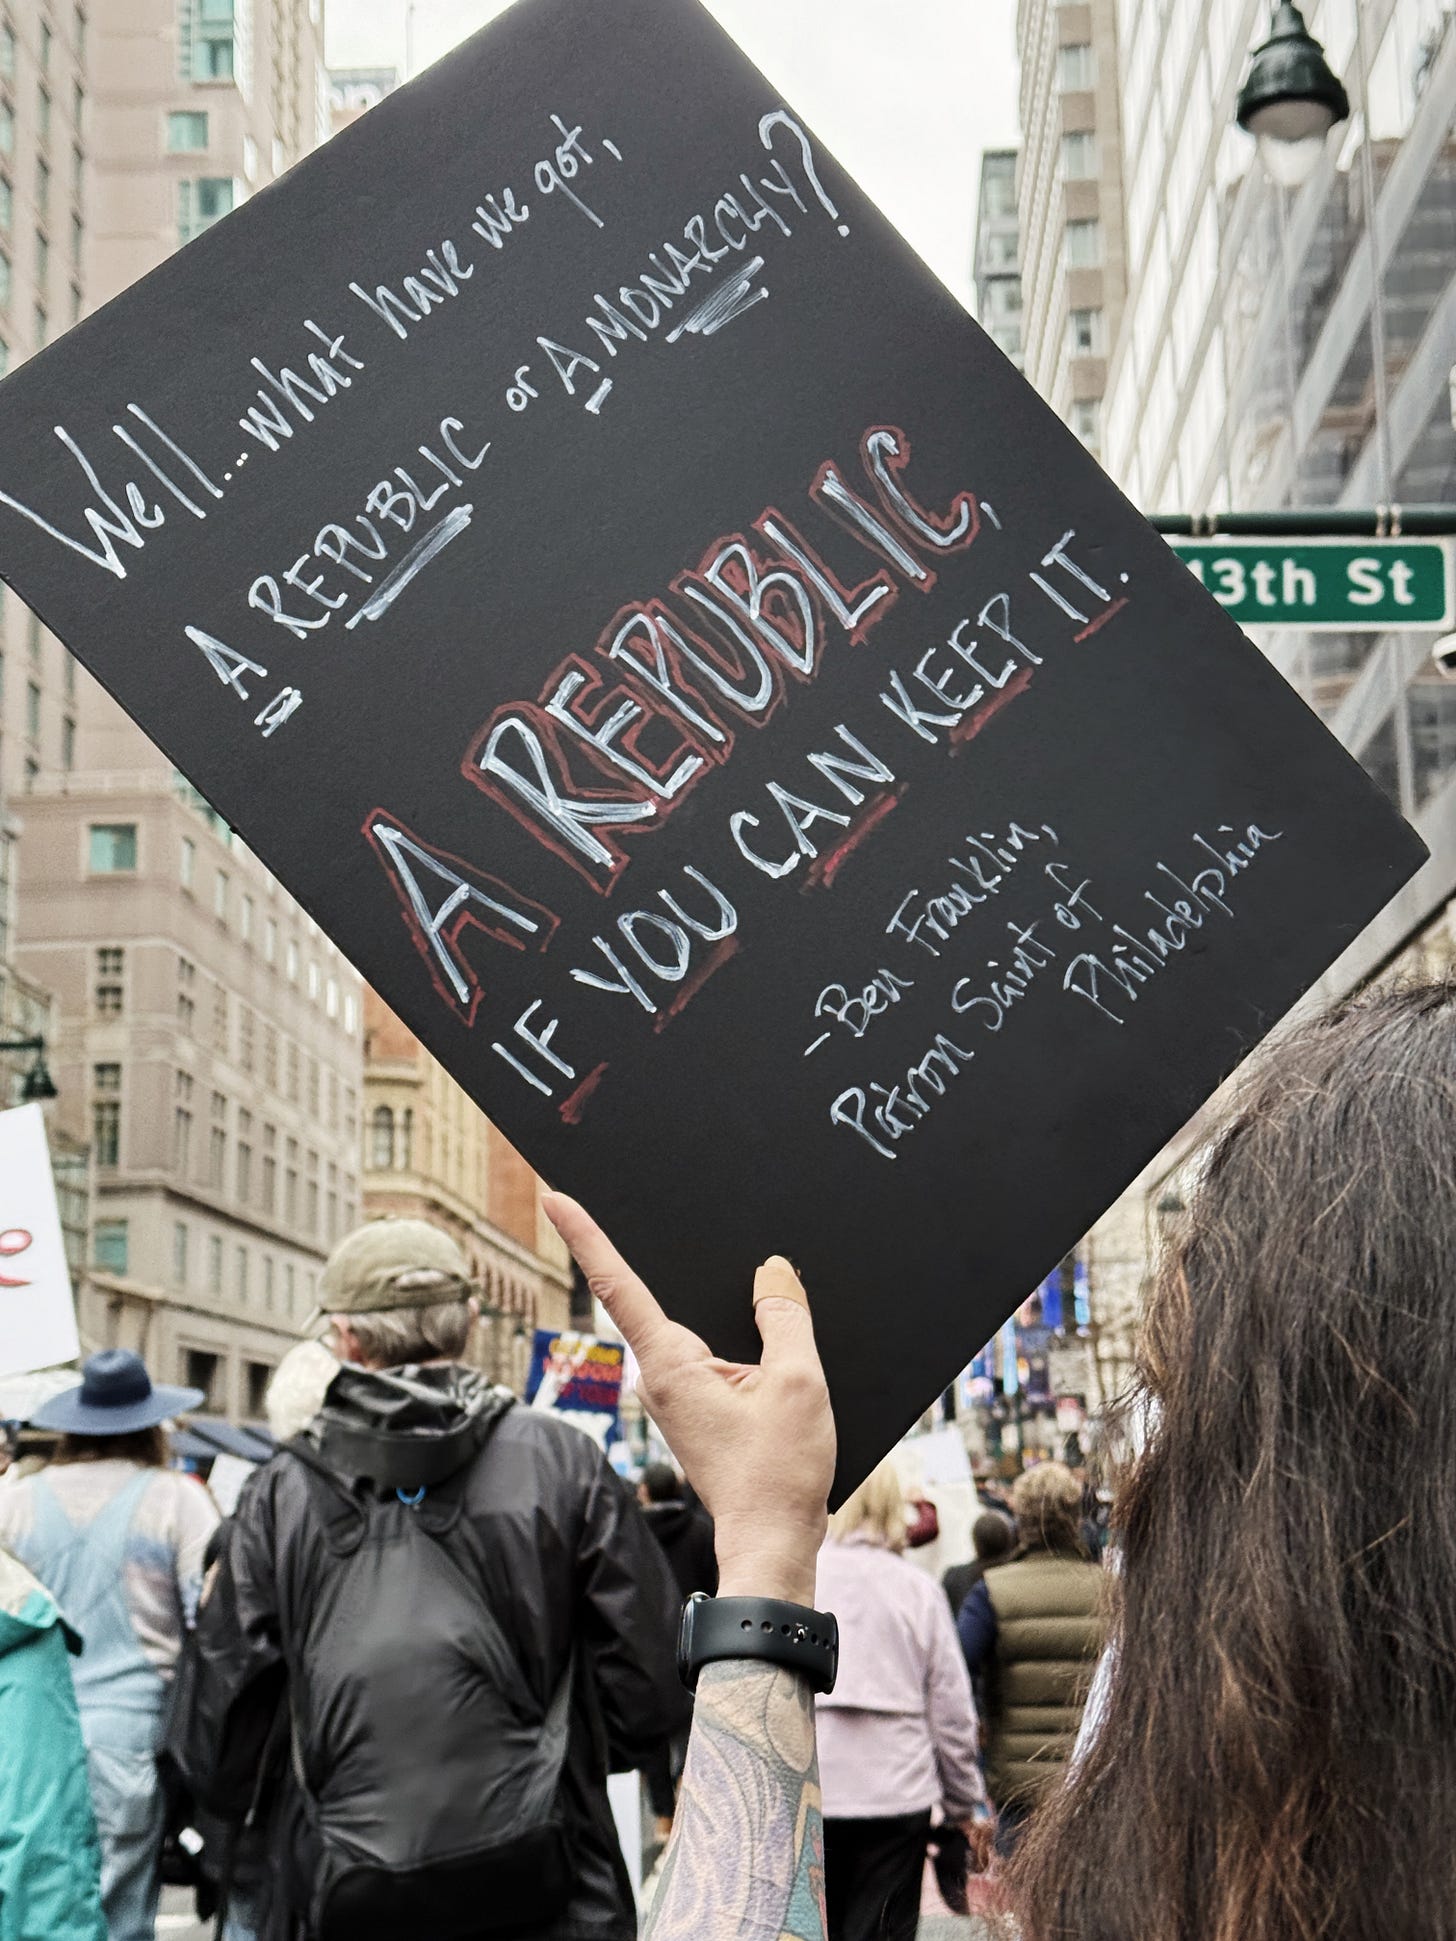 Well...what have we got,
A REPUBLIC or A MONARCHY?
A REPUBLIC,
IF YOU CAN KEEP IT.
-Ben Franklin,
Patron Saint of
Philadelphia
13th St